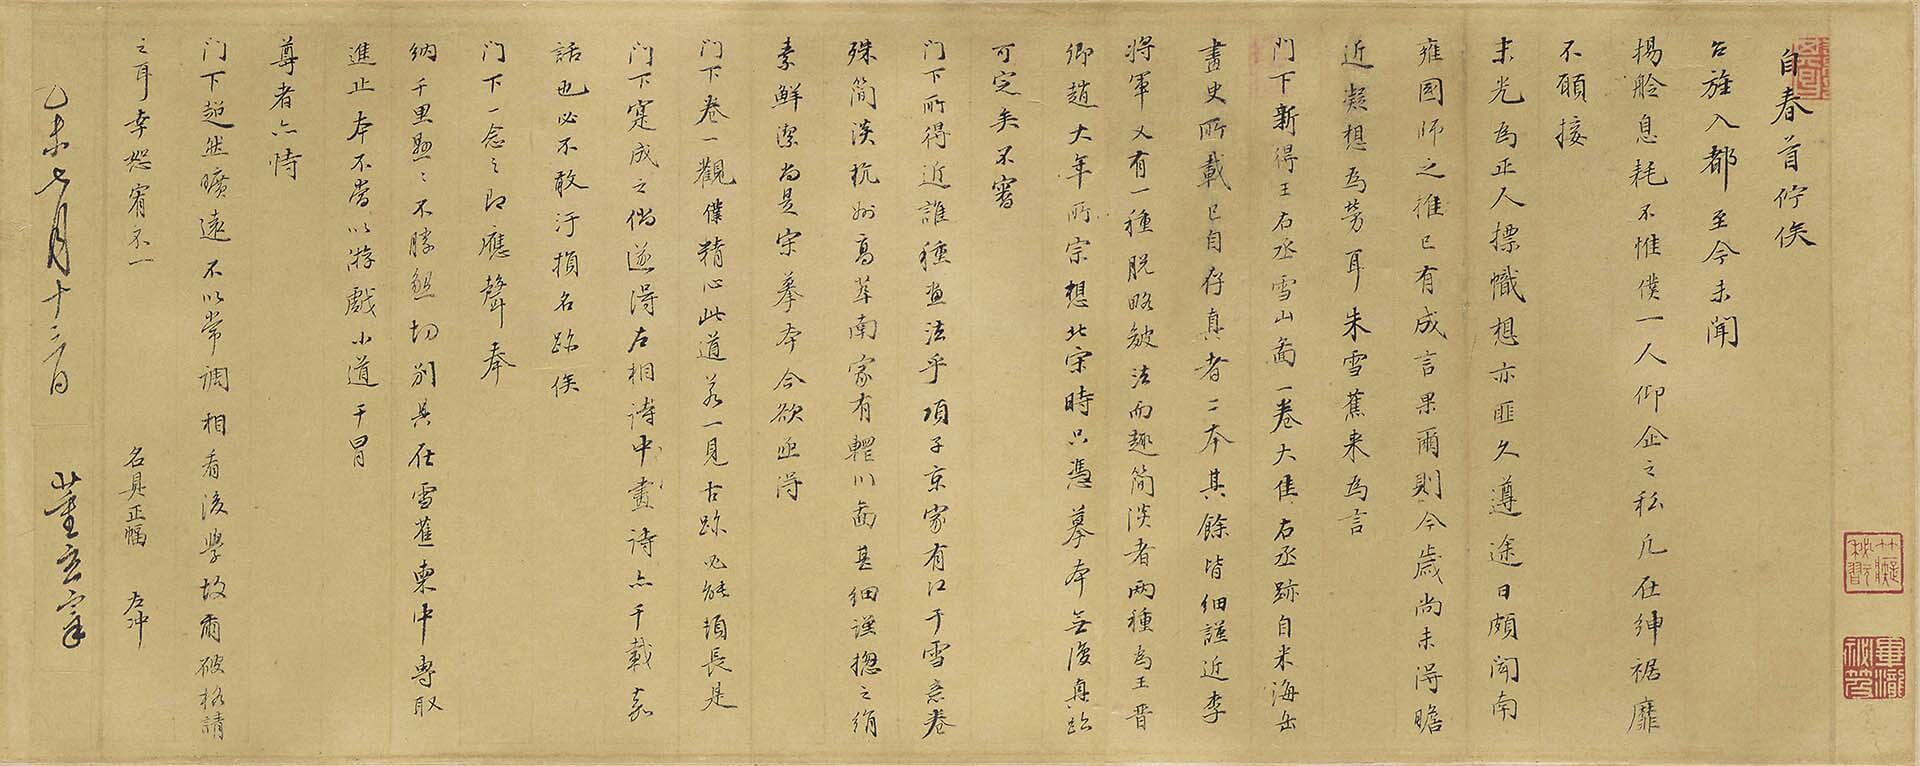 自春首佇俟
台旌入都至今未聞
揚舲息耗不惟僕一人仰企之私凡在紳裾靡
不願接
末光為正人摽幟想亦匪久遵途日頗聞南
雍國師之推已有成言果爾則今歲尚未得瞻
近凝想為勞耳朱雪蕉来為言
門下新得王右丞雪山啚一卷大佳右丞跡自米海岳
畫史所載已自存真者二本其餘皆細謹近李
將軍又有一種脫略皴法而趣簡淡者兩種為王晋
卿趙大年所宗想北宋時只憑摹本無復真跡
可定矣不審
門下所得近誰種畫法乎項子京家有江干雪意卷
殊簡淡杭州高萃南家有輞川啚甚細謹摠之絹
素鮮潔尚是宋摹本今欲亟得
門下卷一觀僕精心此道若一見古跡必能頓長是
門下寔成之倘遂得右相詩中畫詩亦千載嘉
話也必不敢汙損名跡俟
門下一念之即應聲奉
納千里懸懸不勝𦂳切別具在雪蕉柬中專取
進止本不當以游戲小道干冒
尊者亦恃
門下超然曠遠不以常調相看後學故爾破格請
之耳幸恕宥不一
名具正幅 左沖
乙未七月十三日 董玄宰